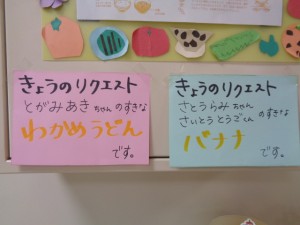 きょうのリクエスト
とがみあきちゃんのすきな
わかめうどん
です。
きょうのリクエスト
さとうらみちゃん
さいとうとうごくんのすきな
バナナ
です。